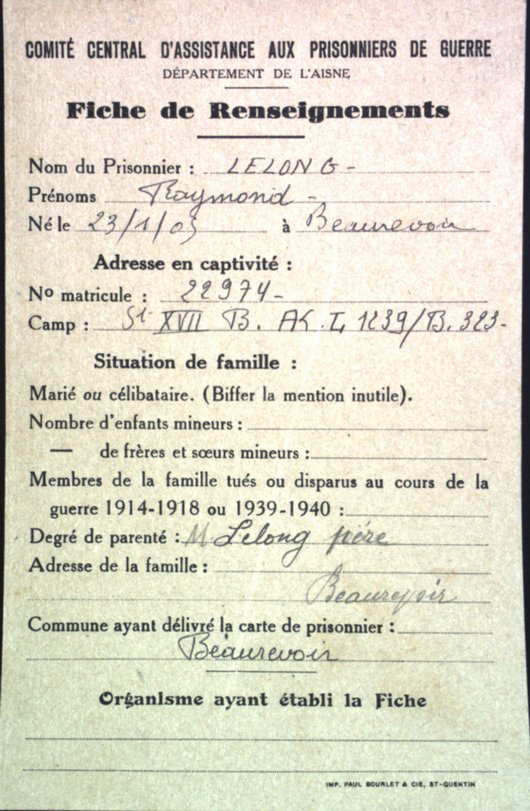 COMITÉ CENTRAL D'ASSISTANCE AUX PRISONNIERS DE GUERRE
DÉPARTEMENT DE L'AISNE
Fiche de Renseignements
Nom du Prisonnier : LELONG -
Prénoms Raymond -
Né le 23/1/05 à Beaurevoir
Adresse en captivité :
No matricule : 22974 -
Camp : St XVII B. AK. I, 1239/B. 323 -
Situation de famille :
Marié ou célibataire. (Biffer la mention inutile).
Nombre d'enfants mineurs :
— de frères et sœurs mineurs :
Membres de la famille tués ou disparus au cours de la
guerre 1914-1918 ou 1939-1940 :
Degré de parenté : M Lelong père
Adresse de la famille :
Beaurevoir
Commune ayant délivré la carte de prisonnier :
Beaurevoir
Organisme ayant établi la Fiche
IMP. PAUL BOURLET & CIE, ST-QUENTIN